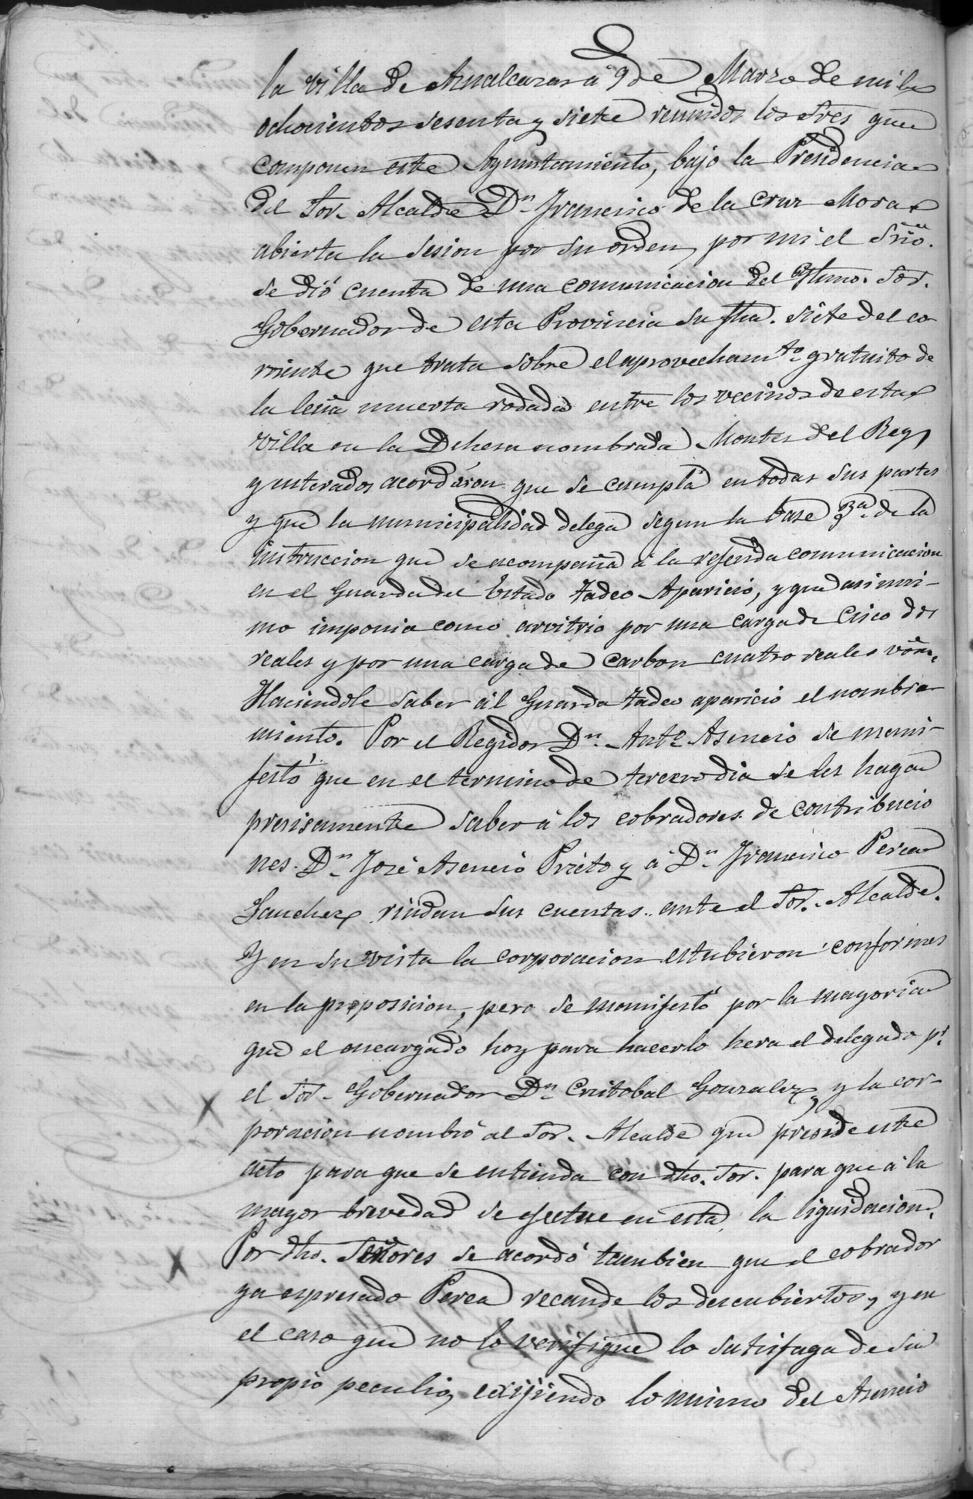 la villa de Aznalcazar a 9 de Marzo de mil
ochocientos sesenta y siete reunidos los Sres que
componen este Ayuntamiento, bajo la Presidencia
del Sor. Alcalde Dn Francisco de la Cruz Mora
abierta la sesion por su orden, por mi el Srio.
se dió cuenta de una comunicacion del Yltmo. Sor.
Gobernador de esta Provincia su fha. siete del co-
rriente que trata sobre el aprovechamto gratuito de
la leña muerta rodada entre los vecinos de esta
villa en la Dehesa nombrada Montes del Rey,
y enterados acordaron que se cumpla en todas sus partes
y que la municipalidad delega segun la base 3a. de la
instruccion que se acompaña á la referida comunicacion
en el Guarda del Estado Tadeo Aparicio, y que asimis-
mo imponia como arvitrio por una carga de Cisco dos
reales y por una carga de Carbon cuatro reales von.
Haciendole saber al Guarda Tadeo aparicio el nombra-
miento. Por el Regidor Dn. Anto. Asencio se mani-
festó que en el termino de tercero dia se les haga
precisamente saber á los cobradores de contribucio
nes Dn José Asencio Prieto y á Dn Francisco Perea
Sanchez rindan sus cuentas ante el Sor. Alcalde.
Y en su vista la corporacion estubieron conformes
en la proposicion, pero se manifestó por la mayoria
que el encargado hoy para hacerlo hera el delegado pr
el Sor. Gobernador Dn Cristobal Gonzalez, y la cor-
poracion nombró al Sor. Alcalde que preside este
acto para que se entienda con dho. Sor. para que á la
mayor brevedad se efectue en esta la liquidacion.
Por dhos. Señores se acordó tambien que el cobrador
ya espresado Perea recaude los descubiertos, y en
el caso que no lo verifique lo satisfaga de su
propio peculio, exijiendo lo mismo del Asencio